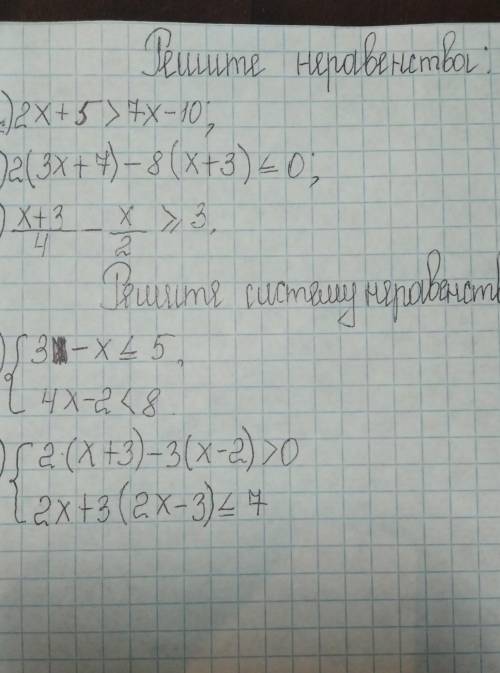 Решите неравенства:
) 2x+5>7x-10;
) 2(3x+7)-8(x+3)≤0;
) x+3/4 - x/2 ≥ 3.
Решите систему неравенств
) { 3-x≤5,
4x-2<8
) { 2·(x+3)-3(x-2)>0
2x+3(2x-3)≤7